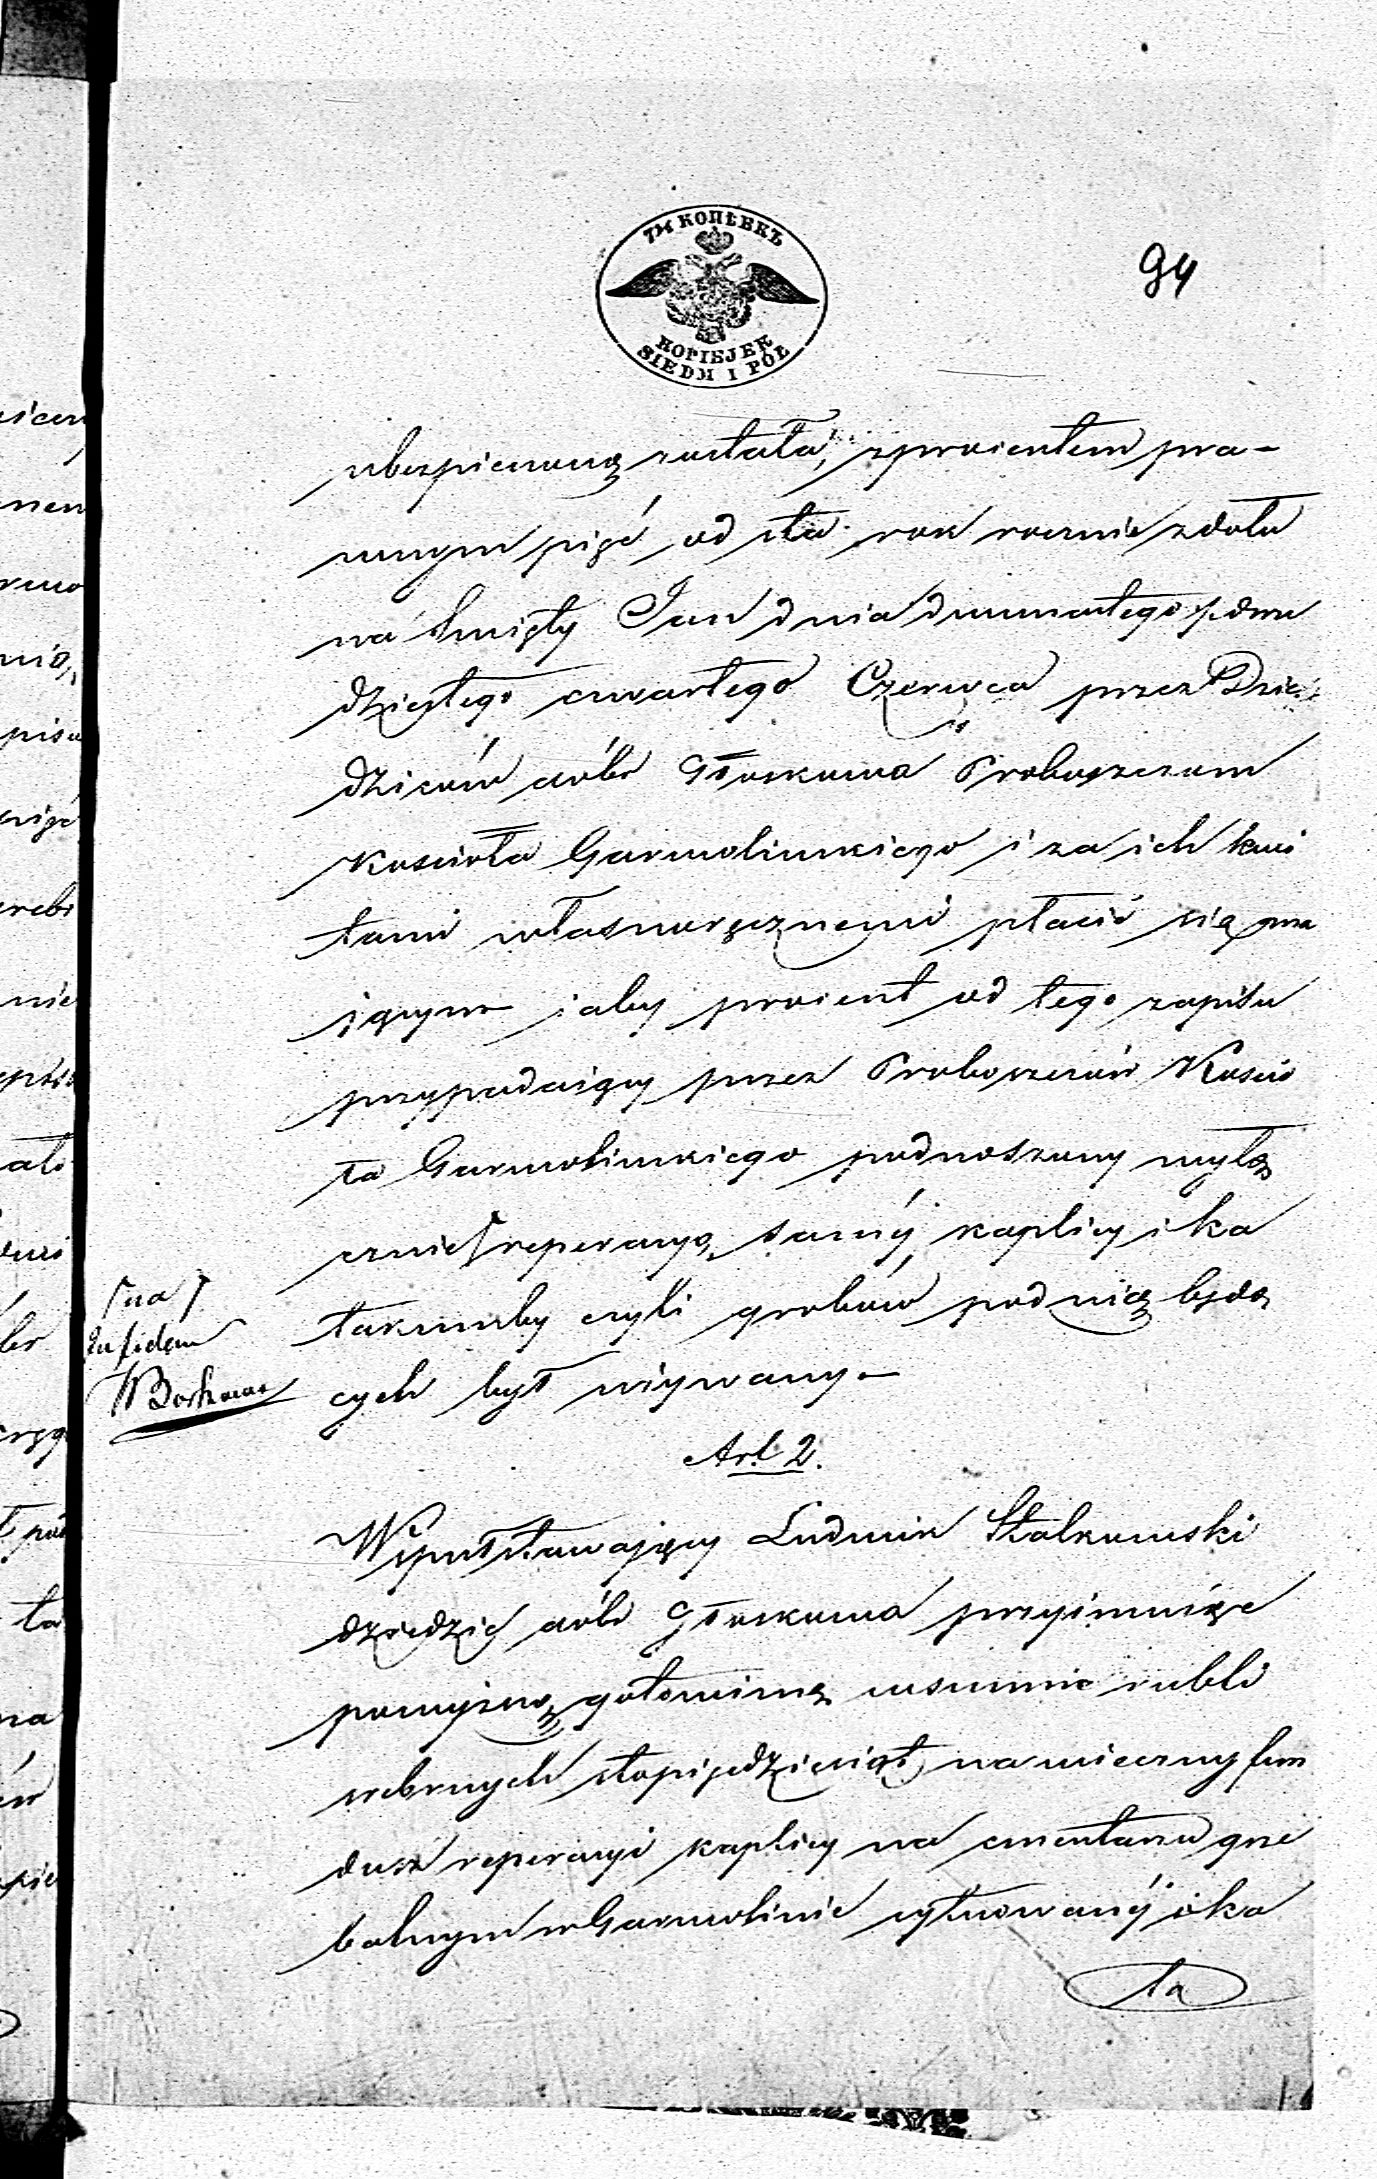 7½ КОПѢЕКЪ
KOPIEJEK
SIEDM I PÓŁ
94
ubezpieczoną została, z procentem pra-
wnym pięć od sta rok rocznie z dołu
na Święty Jan dnia dwunastego / dwu
dziestego czwartego Czerwca przez Dzie
dziców dóbr Głoskowa Proboszczom
Kościoła Garwolińskiego i za ich kwi
tami własnoręcznemi płacić się ma
jącym i aby procent od tego zapisu
przypadaiący przez Proboszczów Kościo
ła Garwolińskiego podnoszony wyłą
cznie reperacyą saméj kaplicy i ka
takumby czyli grobów pod nią będą
cych był używany.
na
W Borkowski
Art. 2.
Współstawający Ludwik Stalkowski
dziedzic dóbr Głoskowa przyimuiąc
powyższą gotowiznę w summie rubli
srebrnych stopięćdziesiąt, na wieczny fun
dusz reperacyi kaplicy na cmentarzu grze
balnym w Garwolinie sytuowanéj i ka
ta